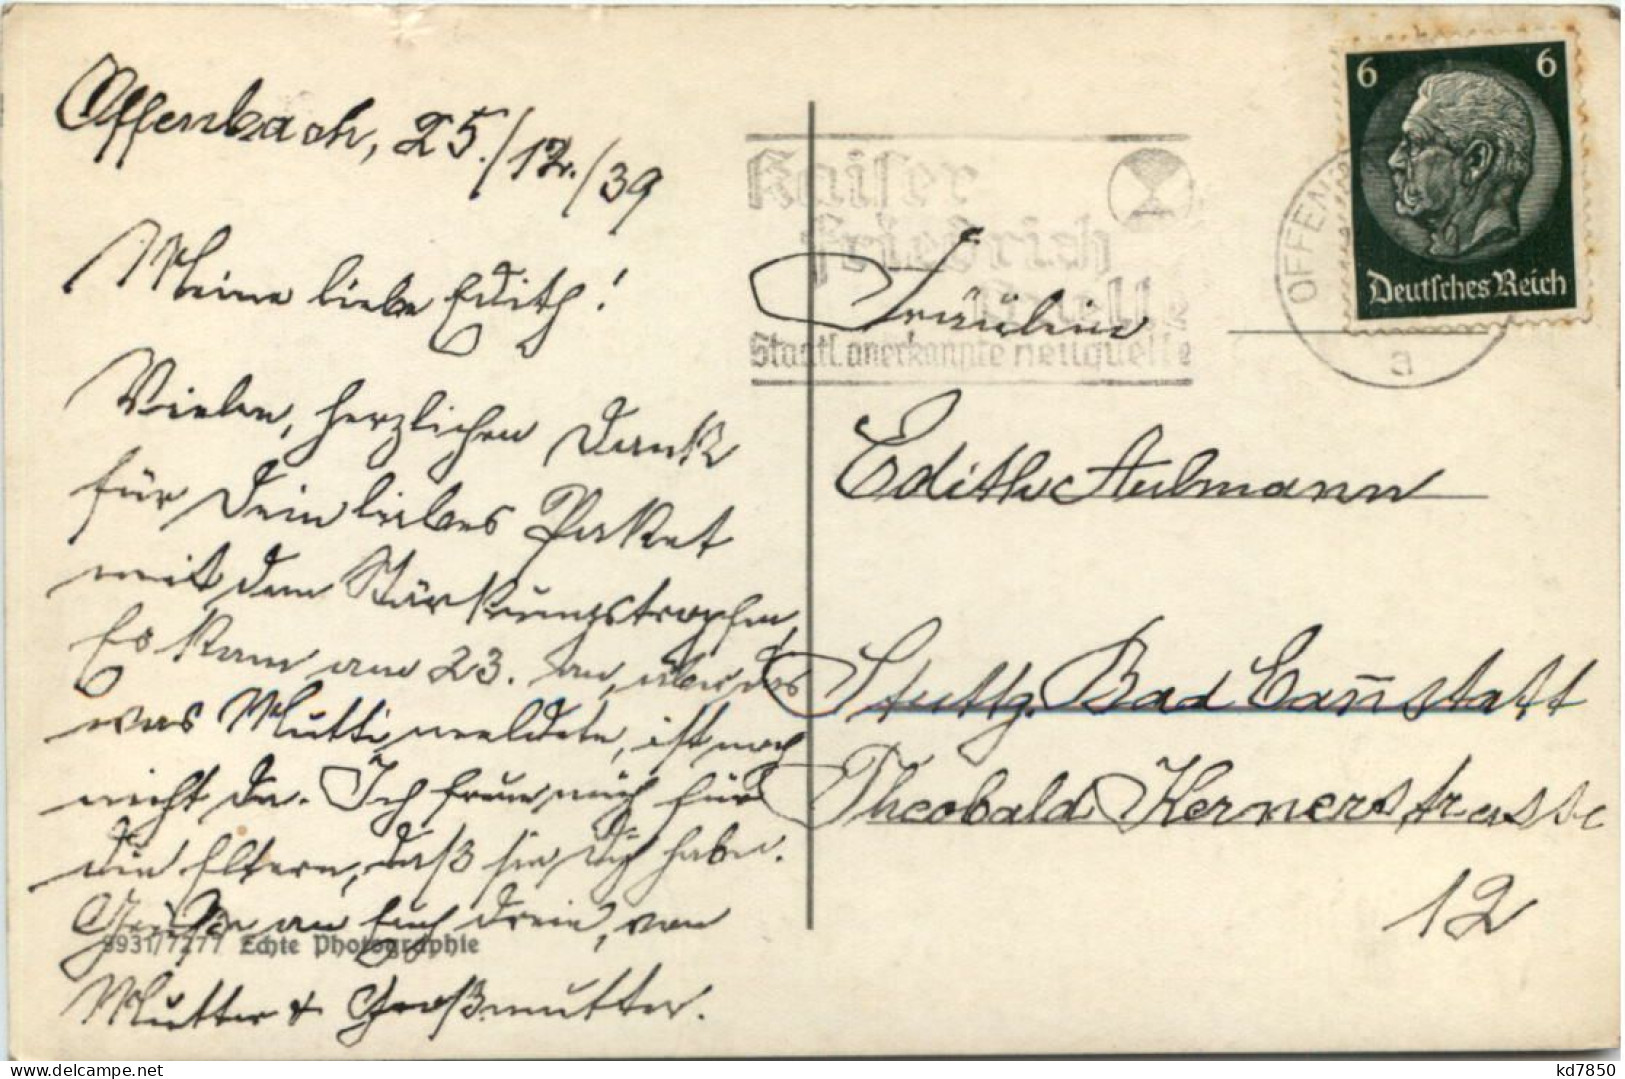 Offenbach, 25./12./39
Meine liebe Edith!
Vielen, herzlichen Dank
für Dein liebes Paket
mit den Stärkungstropfen,
Es kam am 23. an, aber das
was Mutti meldete, ist noch
nicht da. Ich freue mich für
die Eltern, daß sie Dich haben.
Grüße an Euch drein, von
Mutter & Großmutter.
9931/7277 Echte Photographie
Kaiser
Friedrich
Quelle
Staatl. anerkannte Heilquelle
OFFEN
a
6 6
Deutsches Reich
Fräulein
Edith Aulmann
Stuttg. Bad Cannstatt
Theobald Kernerstrasse
12
kd7850